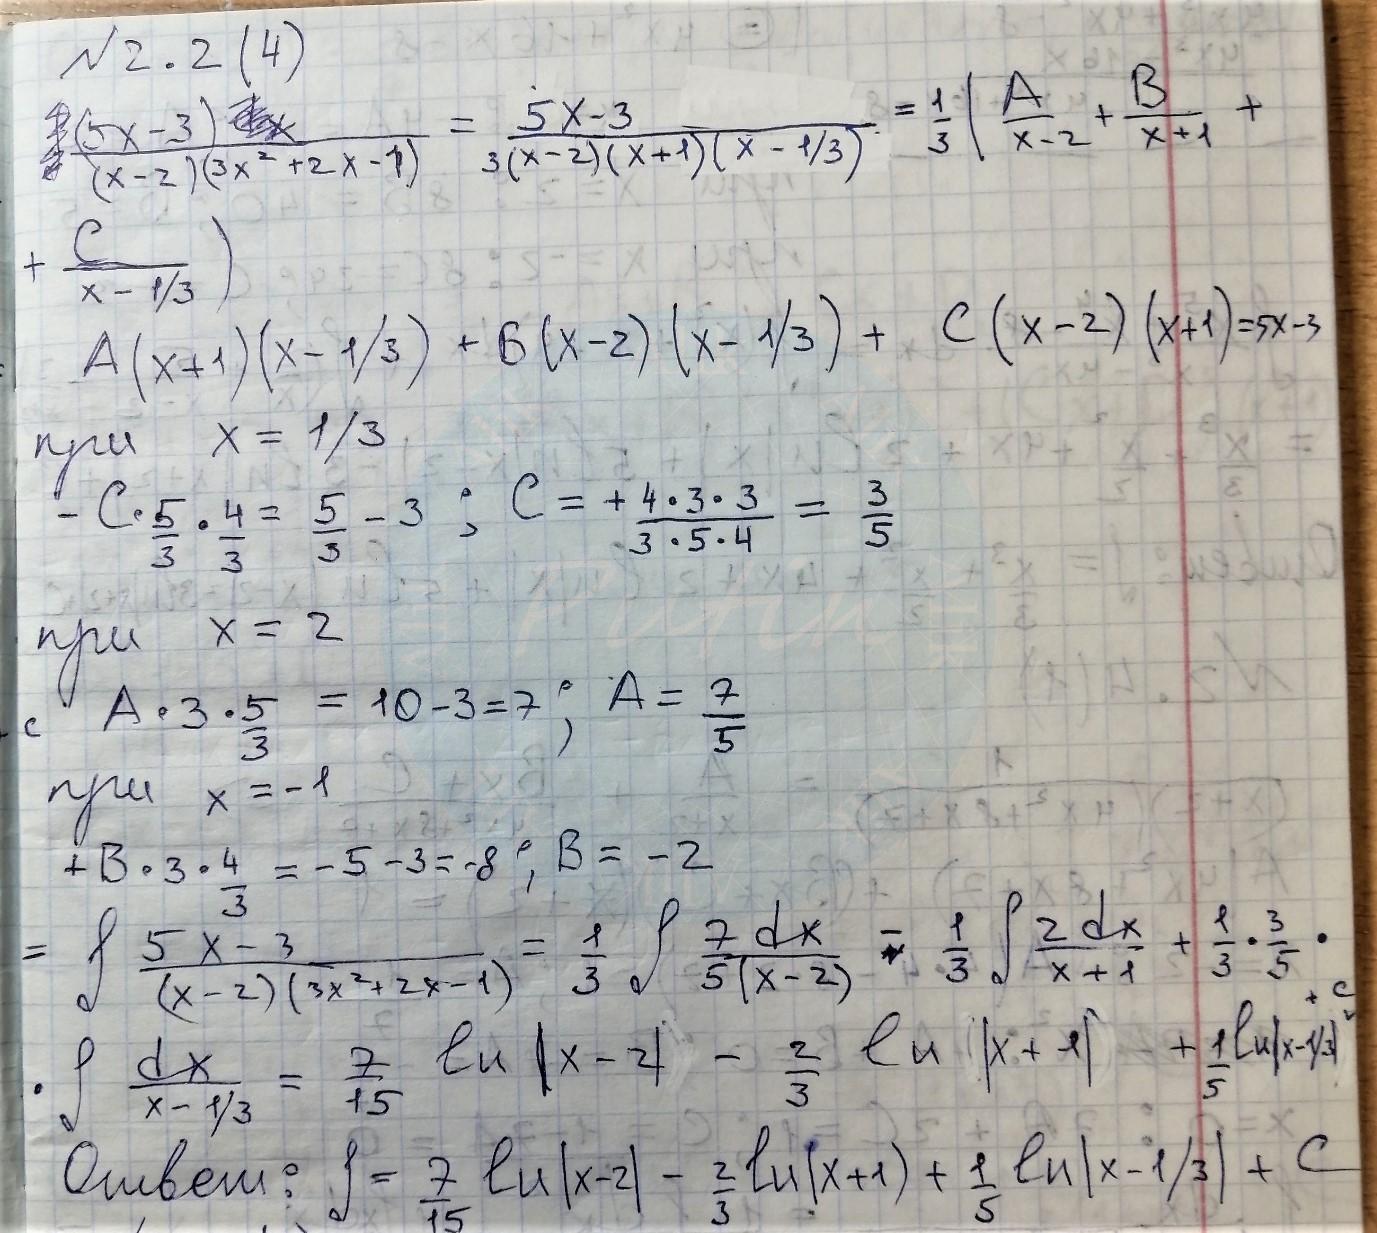 №2.2(4)
(5x-3) / (x-2)(3x²+2x-1) = 5x-3 / 3(x-2)(x+1)(x-1/3) = 1/3 ( A/x-2 + B/x+1 +
+ C/x-1/3 )
A(x+1)(x-1/3) + B(x-2)(x-1/3) + C(x-2)(x+1)=5x-3
при x = 1/3
- C·5/3·4/3 = 5/3 - 3 ; C = + 4·3·3 / 3·5·4 = 3/5
при x = 2
A·3·5/3 = 10-3=7 ; A = 7/5
при x = -1
+B·3·4/3 = -5-3=-8 ; B = -2
= ∫ 5x-3 / (x-2)(3x²+2x-1) = 1/3 ∫ 7dx / 5(x-2) - 1/3 ∫ 2dx / x+1 + 1/3·3/5·
·∫ dx / x-1/3 = 7/15 ln|x-2| - 2/3 ln|x+1| + 1/5 ln|x-1/3| + C
Ответ: ∫ = 7/15 ln|x-2| - 2/3 ln|x+1) + 1/5 ln|x-1/3| + C